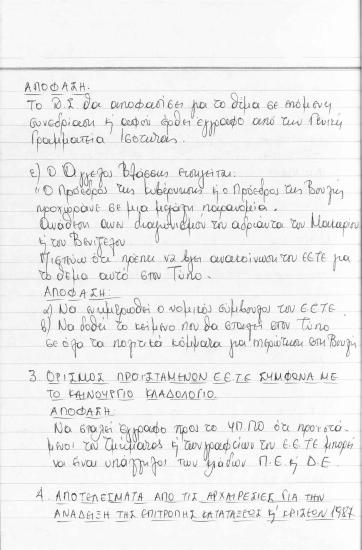 ΑΠΟΦΑΣΗ:
Το Δ.Σ θα αποφασίσει για το θέμα σε επόμενη
συνεδρίαση ή αφού έρθει έγγραφο από την Γενική
Γραμματεία Ισότητας.
ε) Ο Άγγελος Βλάσσης εισηγείται:
"Ο Πρόεδρος της κυβέρνησης ή ο Πρόεδρος της Βουλής
προχώρανε σε μια μεγάλη παρανομία.
Ανάθεση άνευ διαγωνισμού του αδριάντα του Μακαρίου
ή του Βενιζέλου.
Πιστεύω ότι πρέπει να βγει ανακοίνωση του ΕΕΤΕ για
το θέμα αυτό στον Τύπο.
ΑΠΟΦΑΣΗ:
α) Να ενημερωθεί ο νομικός σύμβουλος του ΕΕΤΕ.
β) Να δοθεί το κείμενο που θα σταλεί στον Τύπο
σε όλα τα πολιτικά κόμματα για επερώτηση στη Βουλή
3. ΟΡΙΣΜΟΣ ΠΡΟΙΣΤΑΜΕΝΩΝ ΕΕΤΕ ΣΥΜΦΩΝΑ ΜΕ
ΤΟ ΚΑΙΝΟΥΡΓΙΟ ΚΛΑΔΟΛΟΓΙΟ
ΑΠΟΦΑΣΗ:
Να σταλεί έγγραφο προς το ΥΠ.ΠΟ ότι προϊστά-
μενοι του τμήματος ή των γραφείων του Ε.Ε.ΤΕ μπορεί
να είναι υπάλληλοι των κλάδων Π.Ε. ή Δ.Ε.
4. ΑΠΟΤΕΛΕΣΜΑΤΑ ΑΠΟ ΤΙΣ ΑΡΧΑΙΡΕΣΙΕΣ ΓΙΑ ΤΗΝ
ΑΝΑΔΕΙΞΗ ΤΗΣ ΕΠΙΤΡΟΠΗΣ ΚΑΤΑΤΑΞΕΩΣ ή ΚΡΙΣΕΩΝ 1987